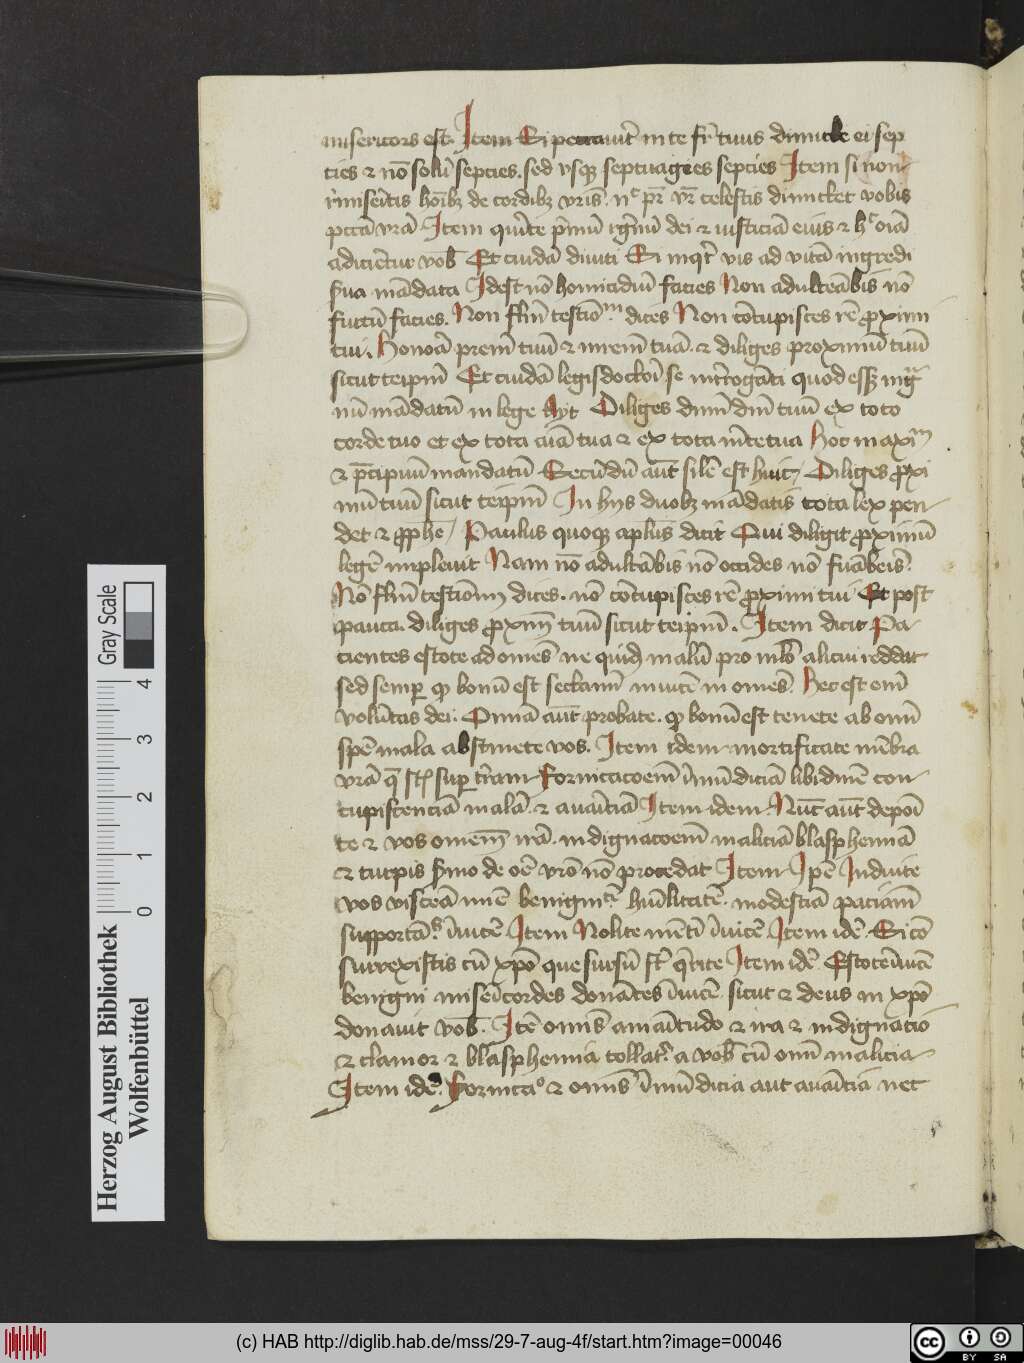 misericors est. Item Si peccauerit in te fr̄ tuus dimitte ei sep
ties ⁊ nō solū septies. sed vsqꝫ septuagies septies Item si non
r̄miseritis hoībꝫ de cordibꝫ vrīs. nᶜ pr̄ vr̄ celestis dimittet vobis
pctā vrā. Item querite p̄mū regnū dei ⁊ iusticiā eius ⁊ hᶜ oīa
adiciētur vob̄ Et cuidā diuiti Si inqt̄ vis ad vitā ingredi
s̄ua mādata Idest nō homicidiū facies Non adulterabis nō
furtū facies. Non fl̄m testioᵐ dices Non cōcupisces rē proximi
tui. Honora prem̄ tuū ⁊ mrem̄ tuā. ⁊ diliges proximū tuū
sicut teipm̄ Et cuidā legisdoctori se interrogāti quod esset mag
nū mādatū in lege Ayt Diliges dnm̄ dm̄ tuū ex toto
corde tuo et ex tota aīa tua ⁊ ex tota mēte tua Hoc maxīm
⁊ p̄cipuū mandatū Secūdū aut̄ sil̄e est huic Diliges proxi
mū tuū sicut teipm̄ In hijs duobꝫ mādatis tota lex pen
det ⁊ prophē Paulus quoqꝫ apl̄us dicit Qui diligit proximū
legē impleuit Nam nō adult̄abis nō occides nō furaberis
Nō fl̄m testioīm dices. nō cōcupisces rē proximi tui Et post
pauca. diliges proxīm tuū sicut teipm̄. Item dicit Pa
cientes estote ad om̄es ne quis malū pro malo alicui reddat
sed semper qꝫ bonū est sectamī inuicē in om̄es. Hec est em̄
volūtas dei. Omnia aut̄ probate. qꝫ bonū est tenete ab omī
spē mala abstinete vos. Item idem mortificate mēbra
vr̄a que st̄ super tr̄am fornicacōem īmūdiciā libidinē con
cupiscenciā malā. ⁊ auariciā Item idem. Nūc aut̄ deponi
te ⁊ vos omnem irā. indignacōem maliciā blasphemiā
⁊ turpis s̄mo de ore vr̄o nō procedat Item Ipē Induite
vos viscera mīe benignitatē humilitatē modestiā paciām
supportātes īuicē. Item Nolite mētiri īuicē. Item idē. Si cō
surrexistis cū xpō que sursū st̄ querite Item idē Estote īuicē
benigni misericordes donātes īuicē. sicut ⁊ deus in xpō
donauit vob̄. Itē omīs amaritudo ⁊ ira ⁊ indignatio
⁊ clamor ⁊ blasphemia tollatur a vob̄ cū omī malicia
Item idē. Fornicatio ⁊ omīs īmūdicia aut auaricia nec
Gray Scale
0 1 2 3 4
Herzog August Bibliothek
Wolfenbüttel
(c) HAB http://diglib.hab.de/mss/29-7-aug-4f/start.htm?image=00046
cc BY SA